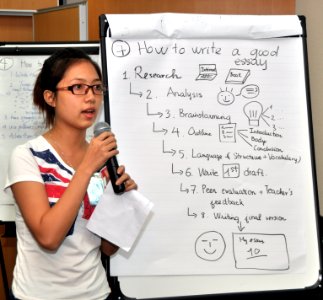 How to write a good
essay
1. Research Internet Book
2. Analysis
3. Brainstorming
4. Outline
Introduction
Body
Conclusion
5. Language (Structure + Vocabulary)
6. Write 1st draft.
7. Peer evaluation + Teacher's
feedback
8. Writing final version
My essay
10